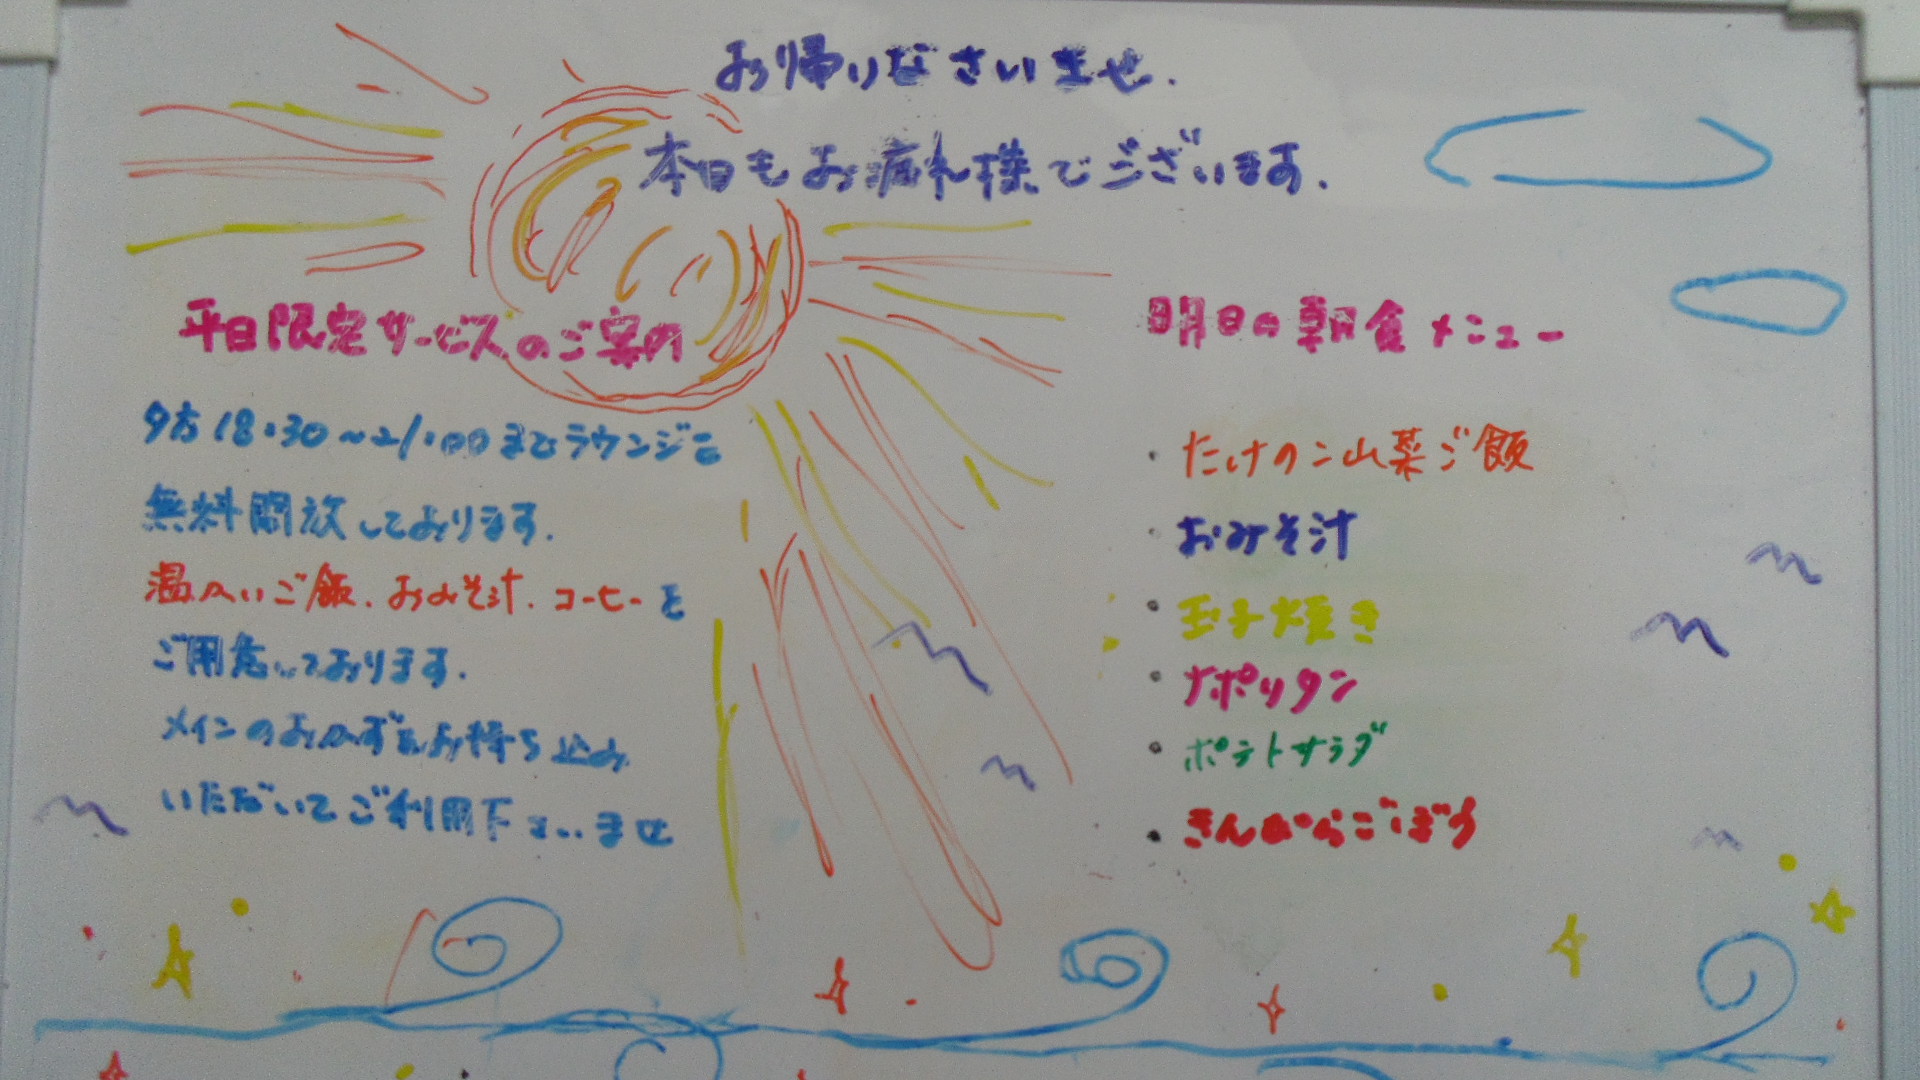 お帰りなさいませ.
本日もお疲れ様でございます.
平日限定サービスのご案内
夕方18:30~21:00までラウンジを
無料開放しております.
温かいご飯.おみそ汁.コーヒーを
ご用意しております.
メインのおかずをお持ち込み
いただいてご利用下さいませ
明日の朝食メニュー
・たけのこ山菜ご飯
・おみそ汁
・玉子焼き
・ナポリタン
・ポテトサラダ
・きんぴらごぼう